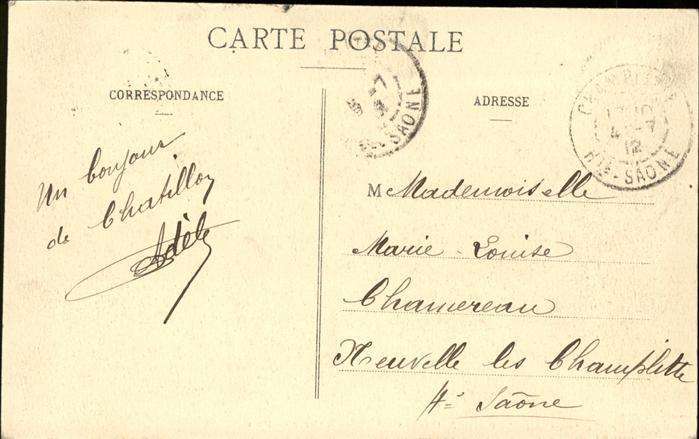 CARTE POSTALE
CORRESPONDANCE
ADRESSE
Un bonjour
de Chatillon
Adèle
M Mademoiselle
Marie-Louise
Chamereau
Neuvelle les Champlitte
Hte Saône
SAONE
4 -7
12
HTE-SAONE